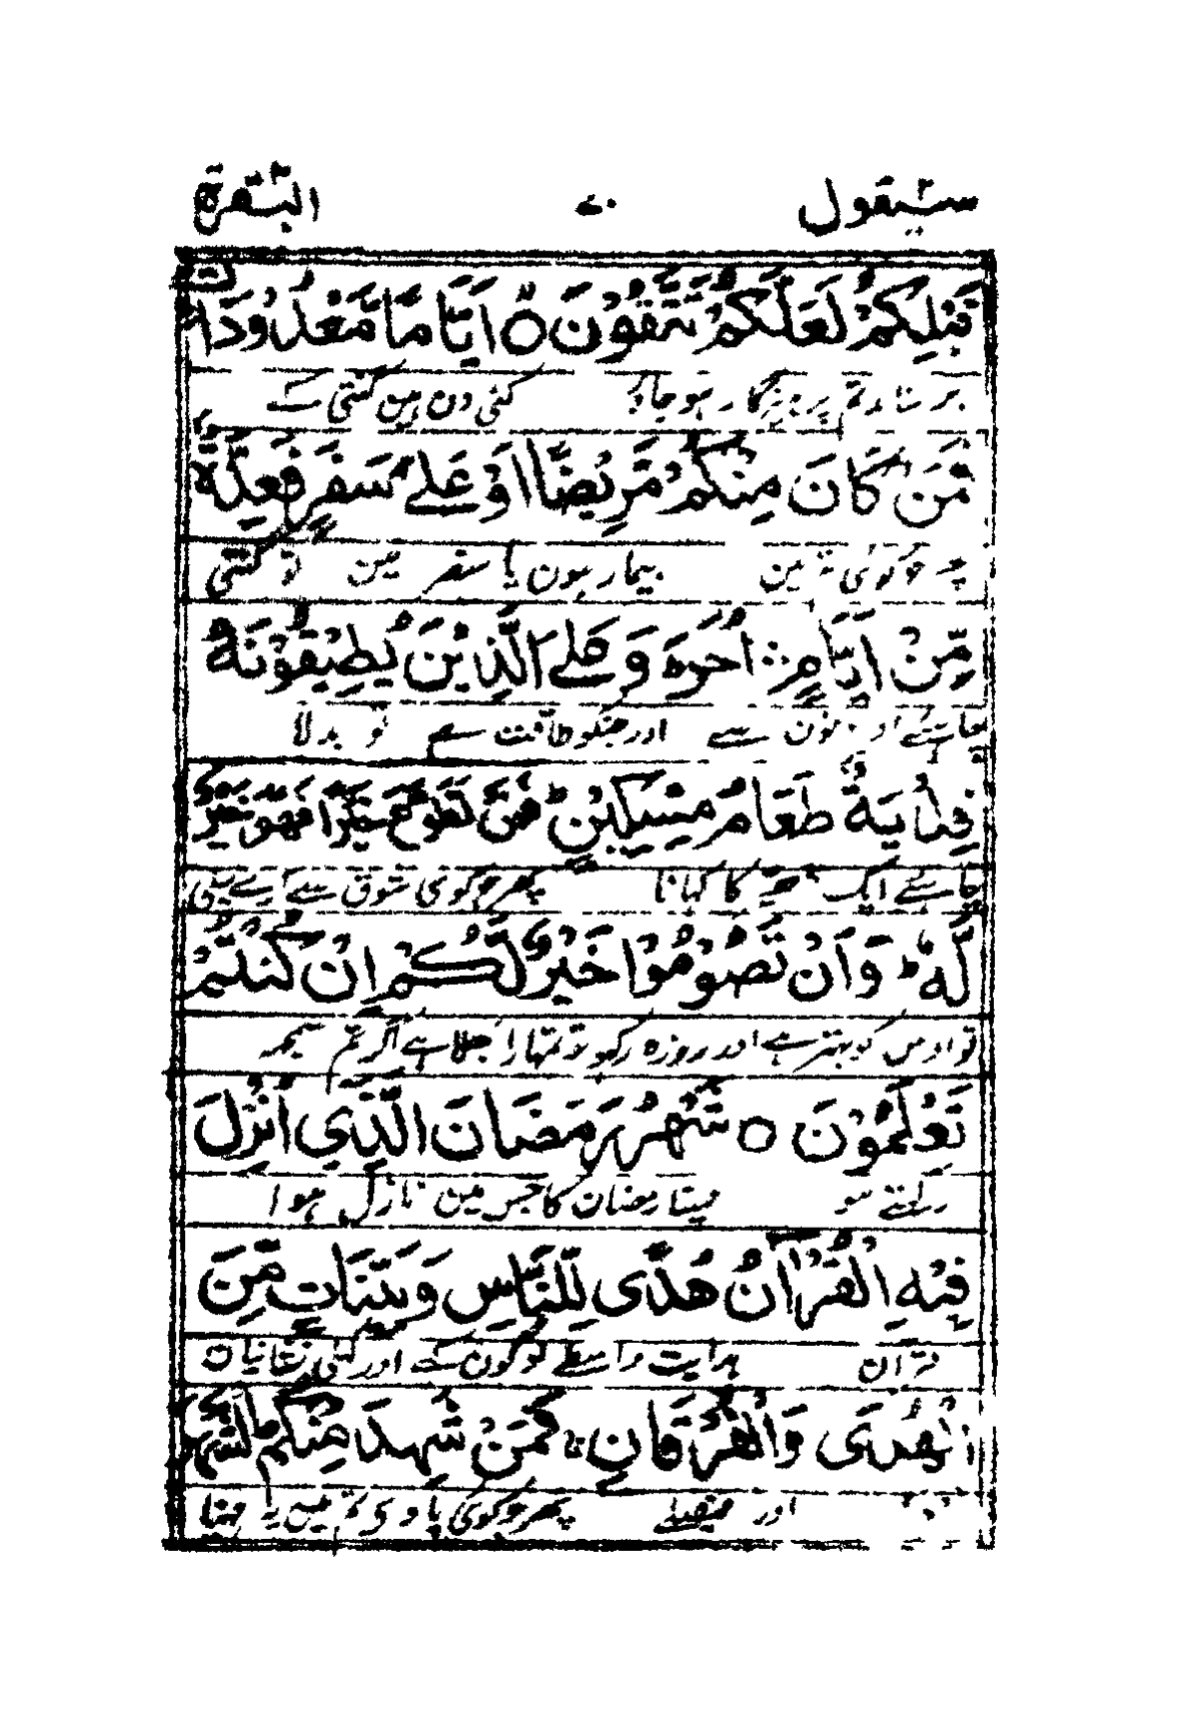 سيقول ٧٠ البقرة
قَبْلِكُمْ لَعَلَّكُمْ تَتَّقُونَ ○ اَيَّامًا مَّعْدُودَاتٍ
تم پرہیزگار ہو جاؤ کئی دن ہین گنتی کے
فَمَنْ كَانَ مِنْكُمْ مَّرِيْضًا اَوْ عَلٰى سَفَرٍ فَعِدَّةٌ
جو کوئی تم مین بیمار ہون یا سفر مین تو گنتی
مِّنْ اَيَّامٍ اُخَرَ ۚ وَعَلَى الَّذِيْنَ يُطِيْقُوْنَهٗ
چاہئے اور دنون سے اور جنکو طاقت ہے تو بدلا
فِدْيَةٌ طَعَامُ مِسْكِيْنٍ ؕ فَمَنْ تَطَوَّعَ خَيْرًا فَهُوَ خَيْرٌ
چاہئے ایک کا کہانا پھر جو کوئی شوق سے کرے نیکی
لَّهٗ ؕ وَاَنْ تَصُوْمُوْا خَيْرٌ لَّكُمْ اِنْ كُنْتُمْ
تو اوس کو بہتر ہے اور روزہ رکھو تو تمہارا بھلا ہے اگر تم سمجھ
تَعْلَمُوْنَ ○ شَهْرُ رَمَضَانَ الَّذِيْ اُنْزِلَ
رکھتے ہو مہینا رمضان کا جس مین نازل ہوا
فِيْهِ الْقُرْاٰنُ هُدًى لِّلنَّاسِ وَبَيِّنَاتٍ مِّنَ
قرآن ہدایت واسطے لوگون کے اور کھلی نشانیان
الْهُدٰى وَالْفُرْقَانِ ۚ فَمَنْ شَهِدَ مِنْكُمُ الشَّهْرَ
اور فیصلے پھر جو کوئی پاوی تم میں یہ مہینا